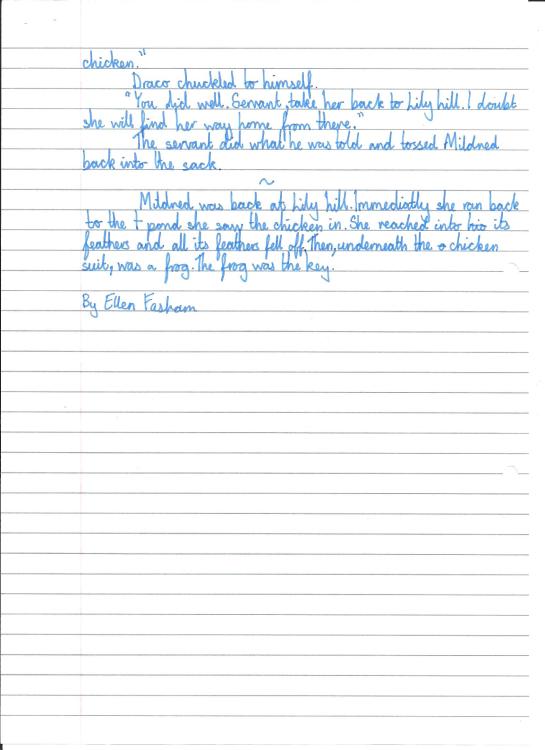 chicken."
Draco chuckled to himself.
"You did well. Servant, take her back to Lily hill. I doubt
she will find her way home from there."
The servant did what he was told and tossed Mildred
back into the sack.
~
Mildred was back at Lily hill. Immediatly she ran back
to the t pond she saw the chicken in. She reached into his its
feathers and all its feathers fell off. Then, underneath the a chicken
suit, was a frog. The frog was the key.
By Ellen Fasham